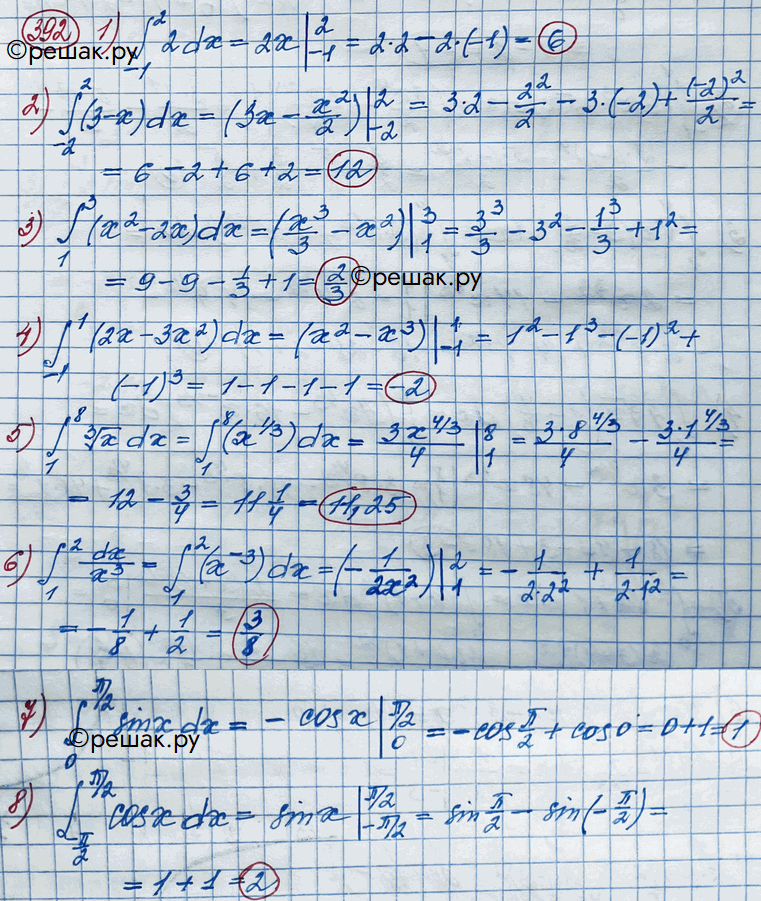 392 1) ∫₋₁² 2 dx = 2x |₋₁² = 2·2 − 2·(−1) = 6
©решак.ру
2) ∫₋₂² (3−x) dx = (3x − x²/2) |₋₂² = 3·2 − 2²/2 − 3·(−2) + (−2)²/2 =
= 6 − 2 + 6 + 2 = 12
3) ∫₁³ (x² − 2x) dx = (x³/3 − x²) |₁³ = 3³/3 − 3² − 1³/3 + 1² =
= 9 − 9 − 1/3 + 1 = 2/3 ©решак.ру
4) ∫₋₁¹ (2x − 3x²) dx = (x² − x³) |₋₁¹ = 1² − 1³ − (−1)² +
(−1)³ = 1 − 1 − 1 − 1 = −2
5) ∫₁⁸ ∛x dx = ∫₁⁸ (x^1/3) dx = 3x^4/3 / 4 |₁⁸ = 3·8^4/3 / 4 − 3·1^4/3 / 4 =
= 12 − 3/4 = 11 1/4 = 11,25
6) ∫₁² dx/x³ = ∫₁² (x⁻³) dx = (− 1/2x²) |₁² = − 1/2·2² + 1/2·1² =
= − 1/8 + 1/2 = 3/8
7) ∫₀^π/2 sin x dx = − cos x |₀^π/2 = − cos π/2 + cos 0 = 0 + 1 = 1
©решак.ру
8) ∫₋π/2^π/2 cos x dx = sin x |₋π/2^π/2 = sin π/2 − sin(− π/2) =
= 1 + 1 = 2